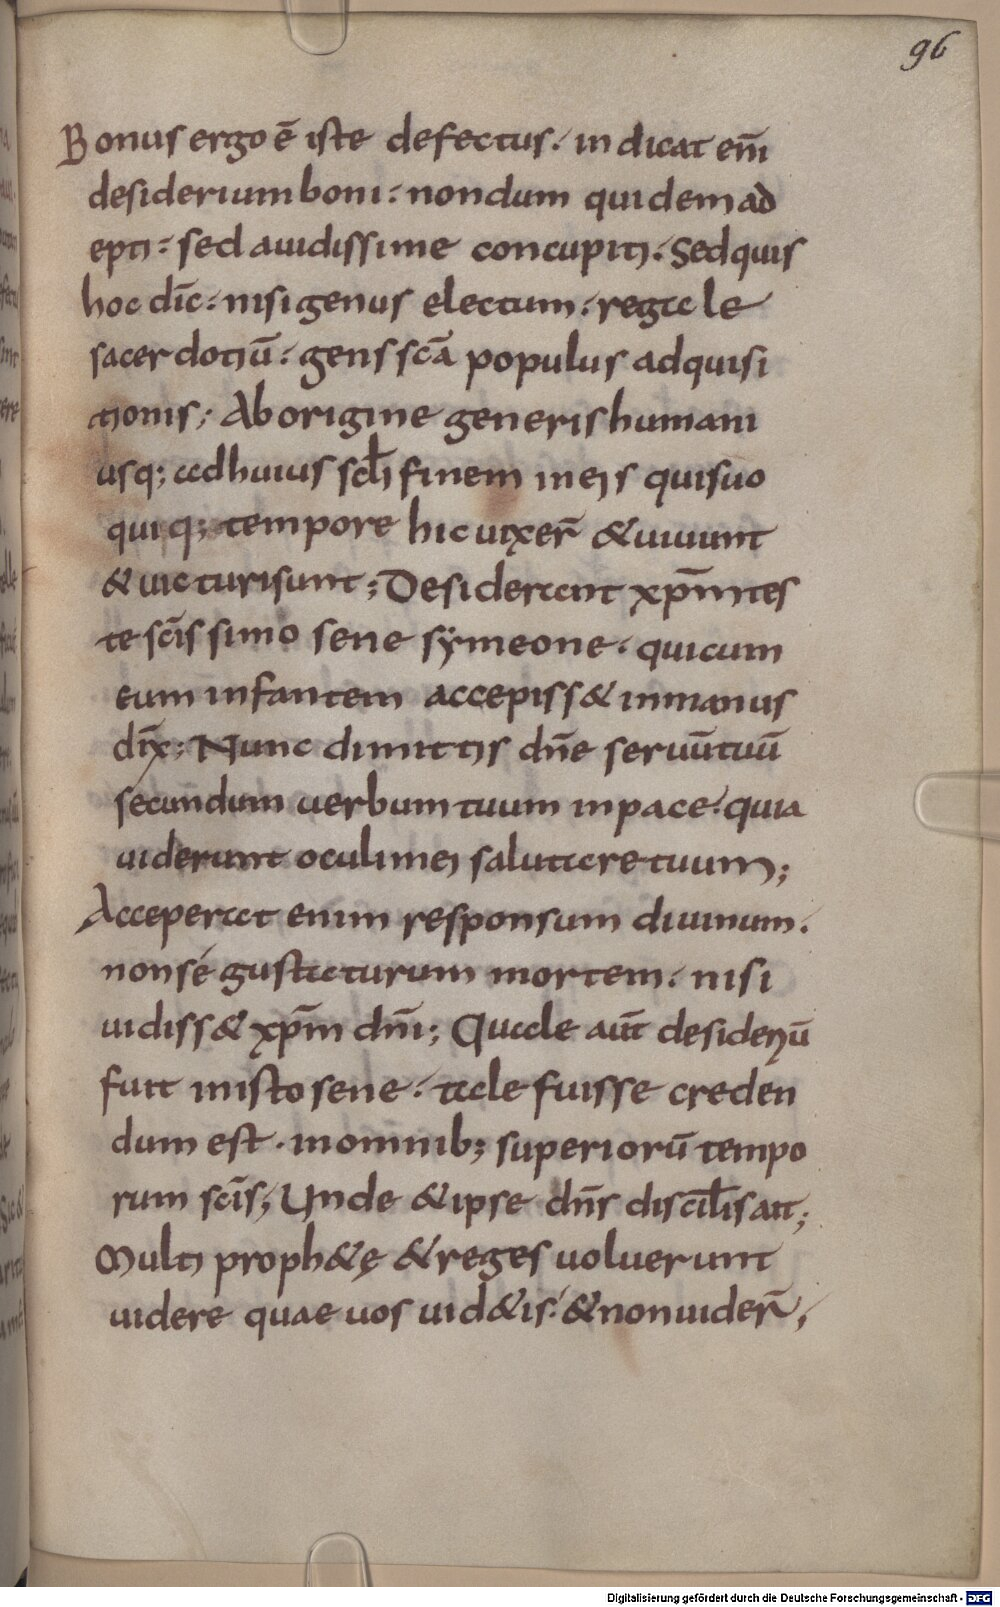 96
Bonus ergo ē iste defectus. indicat eni̅
desiderium boni. nondum quidem ad
epti. sed auidissime concupiti. Sed quis
hoc dic̅. nisi genus electum. regale
sacerdotiū. gens sc̅a populus adquisi
tionis; Ab origine generis humani
usq; ad huius sc̅li finem in eis qui suo
quiq; tempore hic uixer̅ & uiuunt
& uicturi sunt; Desiderant xp̅m tes
te sc̅issimo sene symeone. qui cum
eum infantem accepiss& in manus
dix̅; Nunc dimittis dn̅e seruū tuū
secundum uerbum tuum in pace. quia
uiderunt oculi mei salutare tuum;
Acceperat enim responsum diuinum.
non se gustaturum mortem. nisi
uidiss& xp̅m dn̅i; Quale aut̅ desideriū
fuit in isto sene. tale fuisse creden
dum est. in omnib; superiorū tempo
rum sc̅is; Unde & ipse dn̅s discip̅lis ait;
Multi proph&ę & reges uoluerunt
uidere quae uos uid&is. & non uider̅;
Digitalisierung gefördert durch die Deutsche Forschungsgemeinschaft - DFG